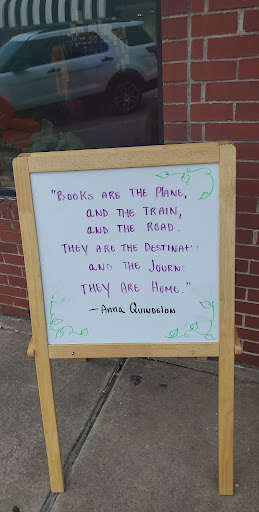 "Books are the Plane,
and the Train,
and the Road.
They are the Destinat
and the Journ
They are Home."
— Anna Quindelon